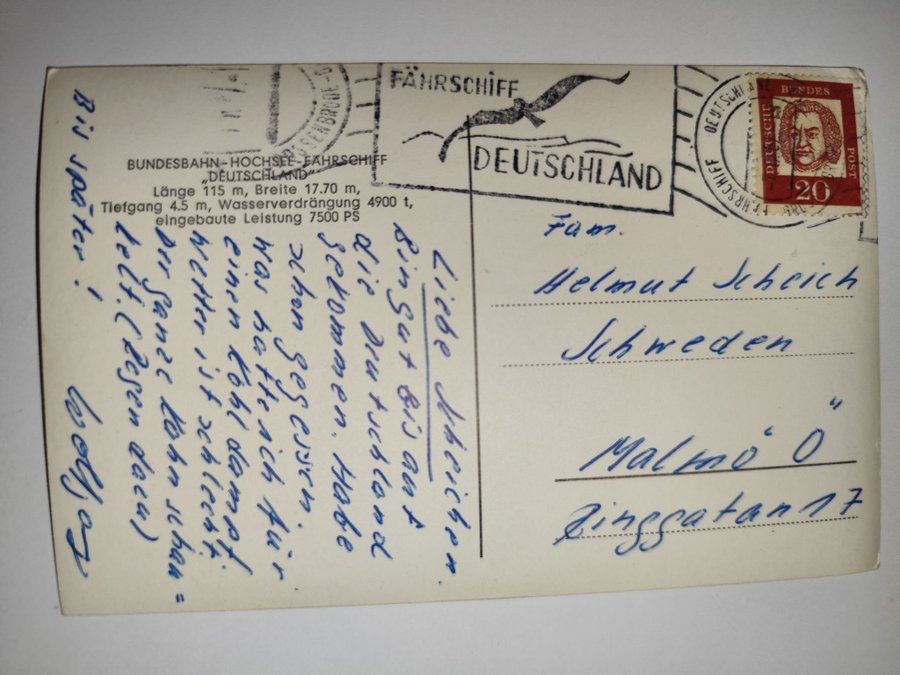 FÄHRSCHIFF
DEUTSCHLAND
FÄHRSCHIFF DEUTSCHLAND
DEUTSCHE BUNDESPOST
20
BUNDESBAHN-HOCHSEE-FÄHRSCHIFF
„DEUTSCHLAND"
Länge 115 m, Breite 17.70 m,
Tiefgang 4.5 m, Wasserverdrängung 4900 t,
eingebaute Leistung 7500 PS
Liebe Scheichen.
Bin gut bis auf
die Deutschland
gekommen. Habe
schon gegessen.
was hatte ich für
einen Kohldampf.
Wetter ist schlecht.
Der ganze Kahn schau=
kelt. (Regen dazu)
Bis später!
Fam.
Helmut Scheich
Schweden
Malmö "Ö"
Ringgatan 17